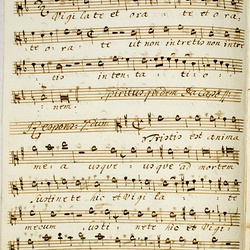 Vigilate et ora te et ora
te o ra te ut non intretis non intre
tis in tenta ti o
nem. Spiritus quidem Da Capo
Responso. 2dum Tristis est anima
me a usque usque ad mortem
sustinete hic et vigila te
mecum susti nete hic et vigi